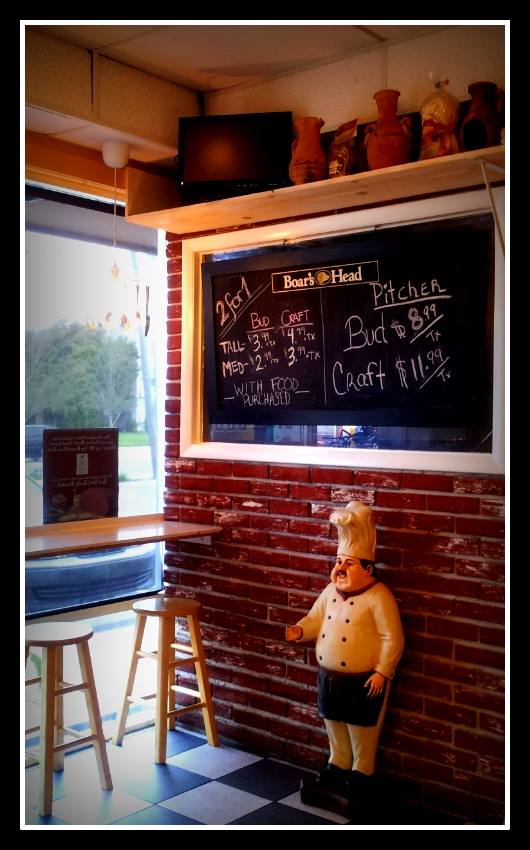 Boar's Head
2 for 1
BUD CRAFT
TALL- $3.99+TX $4.99+TX
MED- $2.99+TX $3.99+TX
—WITH FOOD—
PURCHASED
Pitcher
Bud $8.99/TX
Craft $11.99/TX